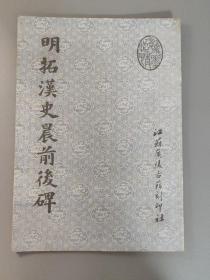 明拓漢史晨前後碑
江蘇廣陵古籍刻印社